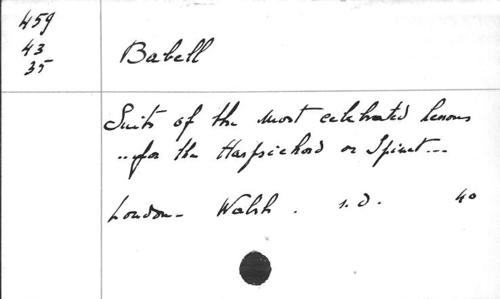 459
43
35
Babell
Suits of the most celebrated lessons
.. for the Harpsichord or Spinet...
London - Walsh . s.d. 4o